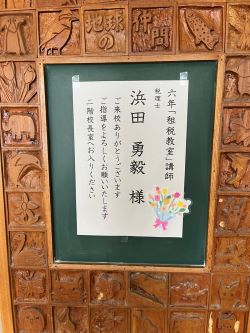 地球の仲間
六年「租税教室」講師
税理士
浜田 勇毅 様
ご来校 ありがとうございます
ご指導をよろしくお願いいたします
二階校長室へお入りください